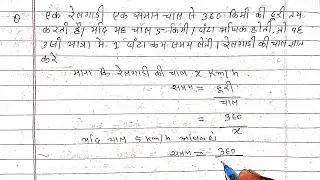 Q एक रेलगाड़ी एक समान चाल से 360 किमी की दूरी तय
करती है। यदि यह चाल 5 किमी/घंटा अधिक होती, तो वह
उसी यात्रा में 1 घंटा कम समय लेती। रेलगाड़ी की चाल ज्ञात
करे
माना कि रेलगाड़ी की चाल x Km/h
समय = दूरी
चाल
= 360
x
यदि चाल 5 km/h अधिक हो
समय = 360